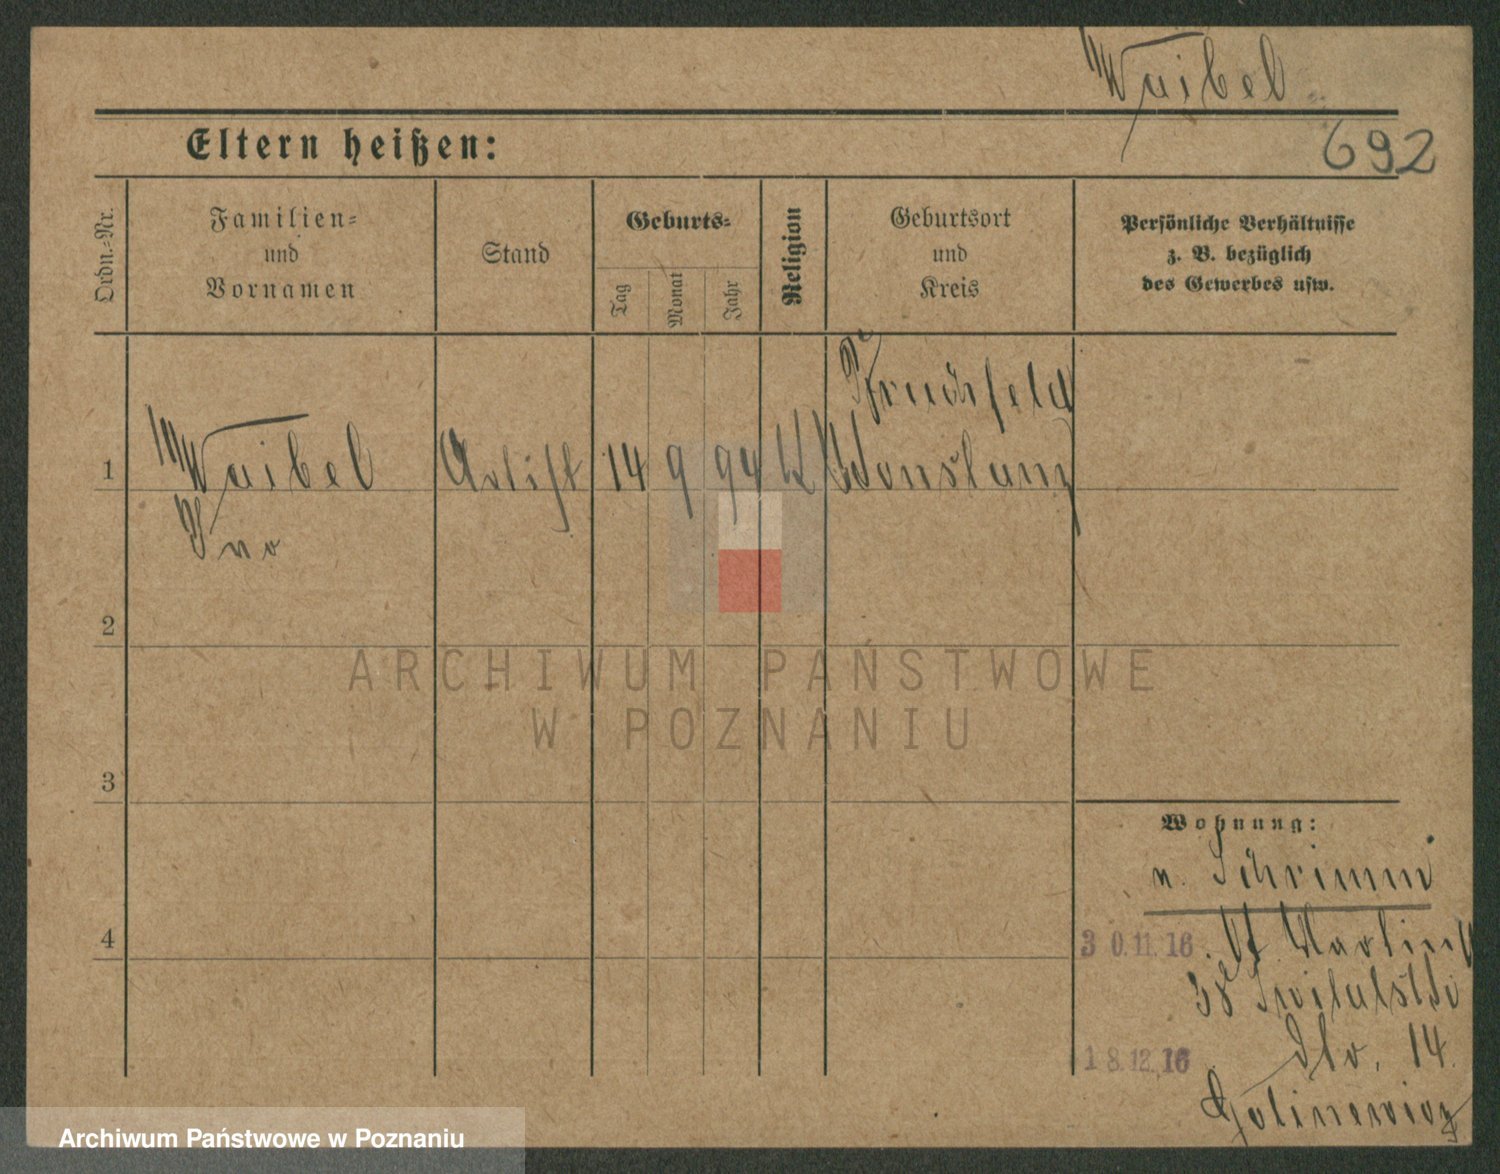 Waibel
692
Eltern heißen:
Ordn.-Nr.
Familien-
und
Vornamen
Stand
Geburts-
Tag
Monat
Jahr
Religion
Geburtsort
und
Kreis
Persönliche Verhältnisse
z. B. bezüglich
des Gewerbes usw.
1
Waibel
Ivo
Artist
14
9
94
K
Konstanz
2
ARCHIWUM PAŃSTWOWE
W POZNANIU
3
Wohnung:
n. Schrimm
4
30.11.16
St. Martin
38
18.12.16
Str. 14.
Archiwum Państwowe w Poznaniu